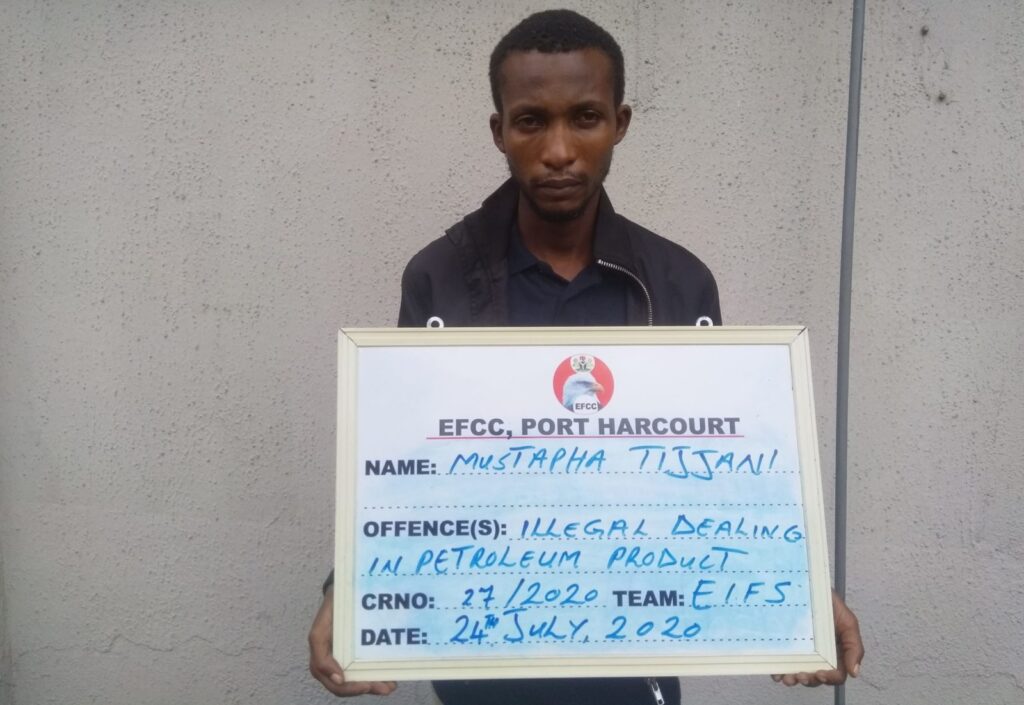 EFCC
EFCC, PORT HARCOURT
NAME: MUSTAPHA TIJJANI
OFFENCE(S): ILLEGAL DEALING
IN PETROLEUM PRODUCT
CRNO: 27/2020 TEAM: EIFS
DATE: 24TH JULY, 2020